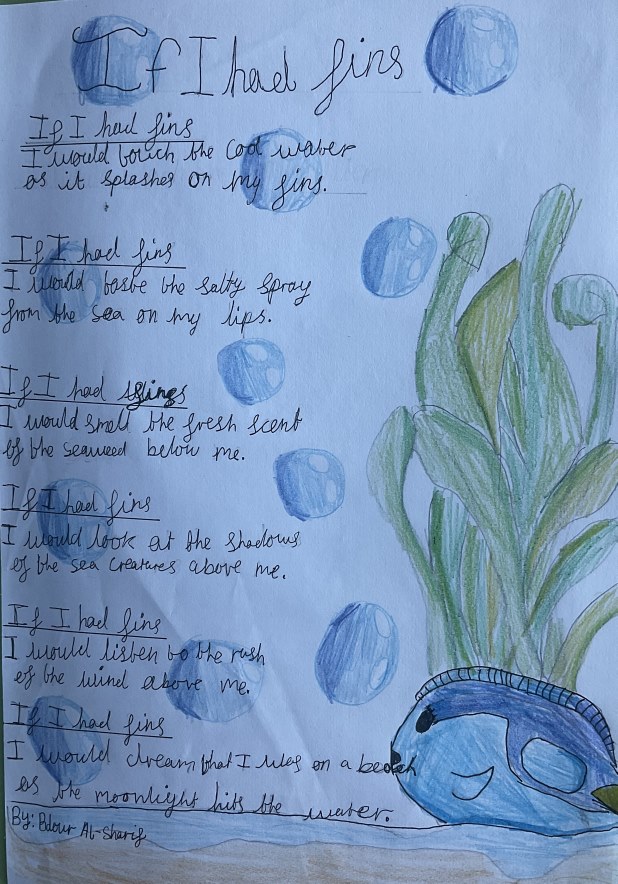 If I had fins
If I had fins
I would touch the cool water
as it splashes on my fins.
If I had fins
I would taste the salty spray
from the sea on my lips.
If I had fins
I would smell the fresh scent
of the seaweed below me.
If I had fins
I would look at the shadows
of the sea creatures above me.
If I had fins
I would listen to the rush
of the wind above me.
If I had fins
I would dream that I was on a beach
as the moonlight hits the water.
By: Bdour Al-Sharif